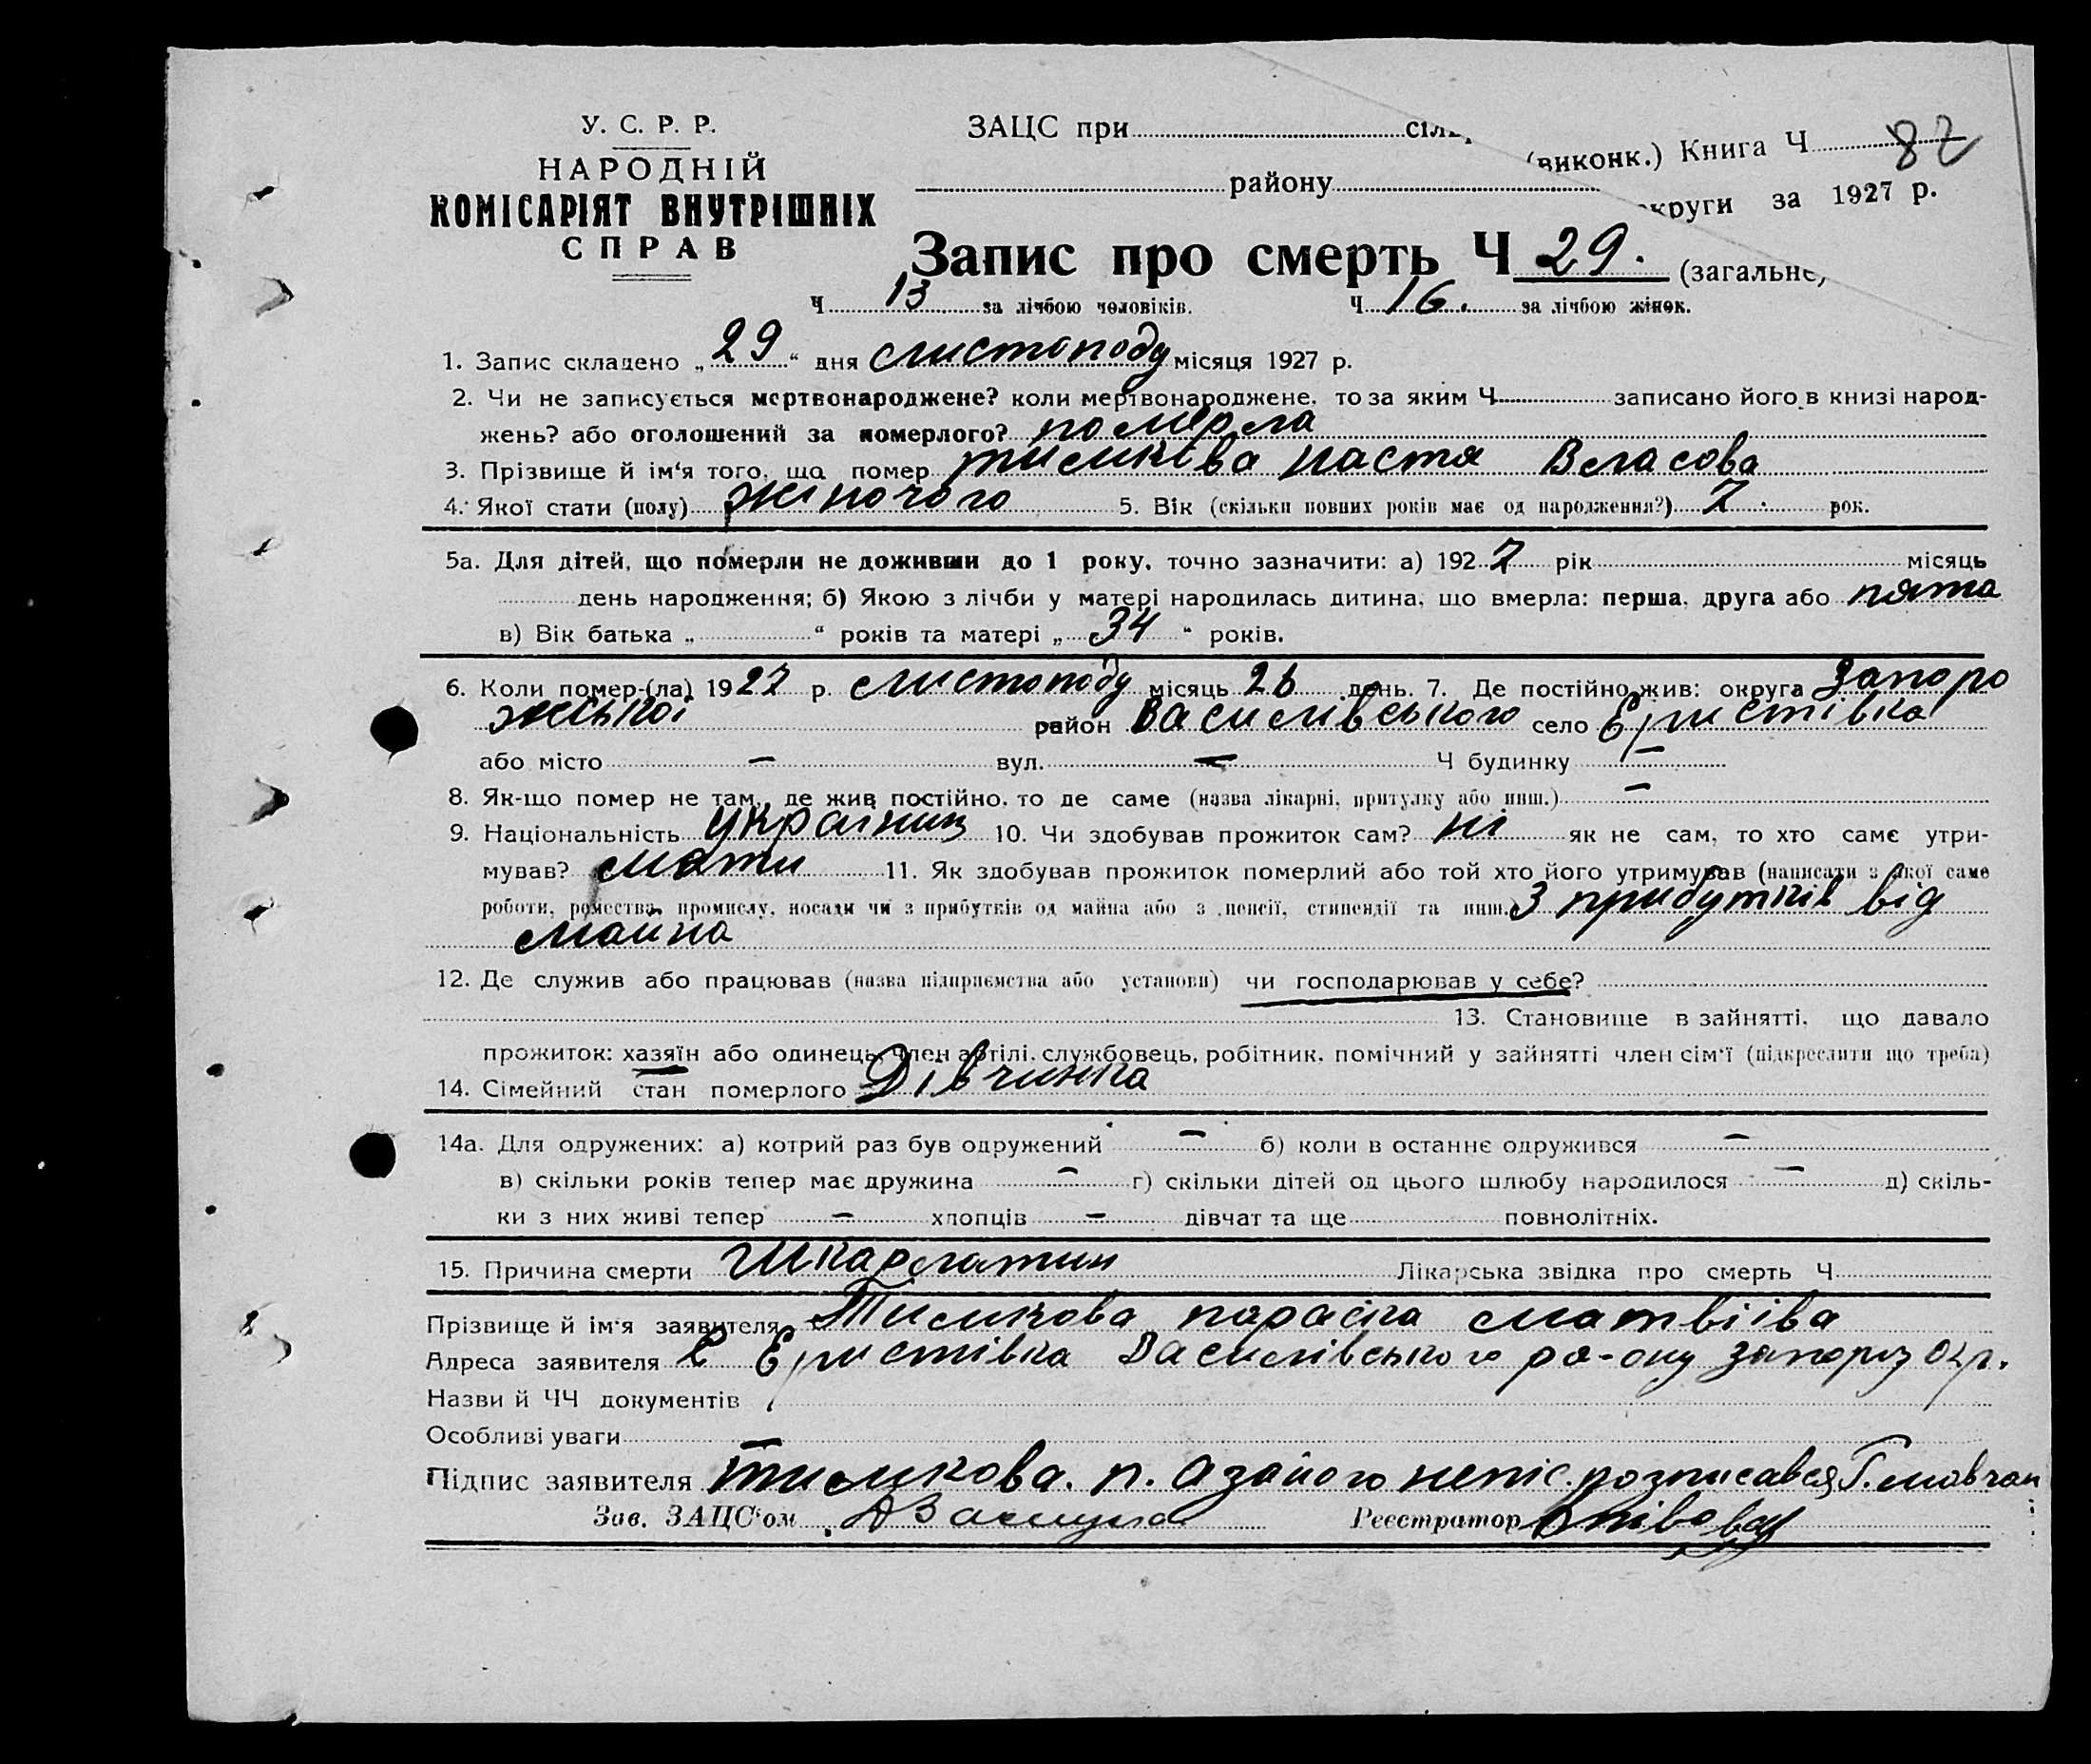 У. С. Р. Р.
НАРОДНІЙ
КОМІСАРІЯТ ВНУТРІШНІХ
СПРАВ
ЗАЦС при
(виконк.) Книга Ч 82
району
округи за 1927 р.
Запис про смерть Ч 29. (загальне)
Ч 13 за лічбою чоловіків. Ч 16. за лічбою жінок.
1. Запис складено „29“ дня листопаду місяця 1927 р.
2. Чи не записується мертвонароджене? коли мертвонароджене, то за яким Ч записано його в книзі народ-
жень? або оголошений за померлого? померла
3. Прізвище й ім'я того, що помер Тимкова Настя Власова
4. Якої стати (полу) жіночого 5. Вік (скільки повних років має од народження?) 7 рок.
5а. Для дітей, що померли не доживши до 1 року, точно зазначити: а) 1927 рік місяць
день народження; б) Якою з лічби у матері народилась дитина, що вмерла: перша, друга або пята
в) Вік батька „ “ років та матері „34“ років.
6. Коли помер-(ла) 1927 р. листопаду місяць 26 день. 7. Де постійно жив: округа Запоро
жської район Василівського село Єристівка
або місто — вул. — Ч будинку —
8. Як-що помер не там, де жив постійно, то де саме (назва лікарні, притулку або инш.) —
9. Національність україниц 10. Чи здобував прожиток сам? ні як не сам, то хто саме утри-
мував? мати 11. Як здобував прожиток померлий або той хто його утримував (написати з якої саме
роботи, ремества, промислу, посади чи з прибутків од майна або з пенсії, стипендії та инш.) З прибутків від
майна
12. Де служив або працював (назва підприємства або установи) чи господарював у себе?
13. Становище в зайнятті, що давало
прожиток: хазяїн або одинець, член артілі, службовець, робітник, помічний у зайнятті член сім'ї (підкреслити що треба)
14. Сімейний стан померлого Дівчинка
14а. Для одружених: а) котрий раз був одружений — б) коли в останнє одружився —
в) скільки років тепер має дружина — г) скільки дітей од цього шлюбу народилося — д) скіль-
ки з них живі тепер — хлопців — дівчат та ще повнолітніх.
15. Причина смерти Шкарлатин Лікарська звідка про смерть Ч
Прізвище й ім'я заявителя Тимкова параска матвіїва
Адреса заявителя С Єристівка Василівського ра-ону запорız окр.
Назви й ЧЧ документів
Особливі уваги —
Підпис заявителя Тимкова. п. А зайого непис. розписався Г. мовчан
Зав. ЗАЦС'ом Реєстратор